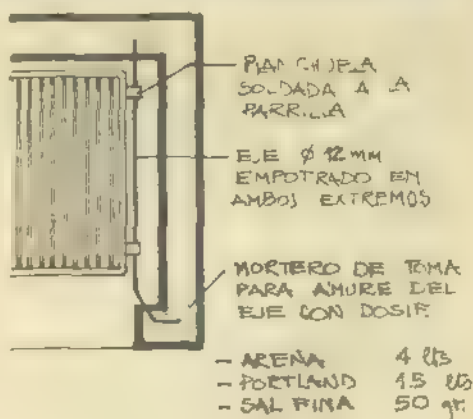 PLANCHUELA
SOLDADA A LA
PARRILLA
EJE Ø 12 mm
EMPOTRADO EN
AMBOS EXTREMOS
MORTERO DE TOMA
PARA AMURE DEL
EJE CON DOSIF.
- ARENA 4 lts
- PORTLAND 1.5 lts
- SAL FINA 50 gr.